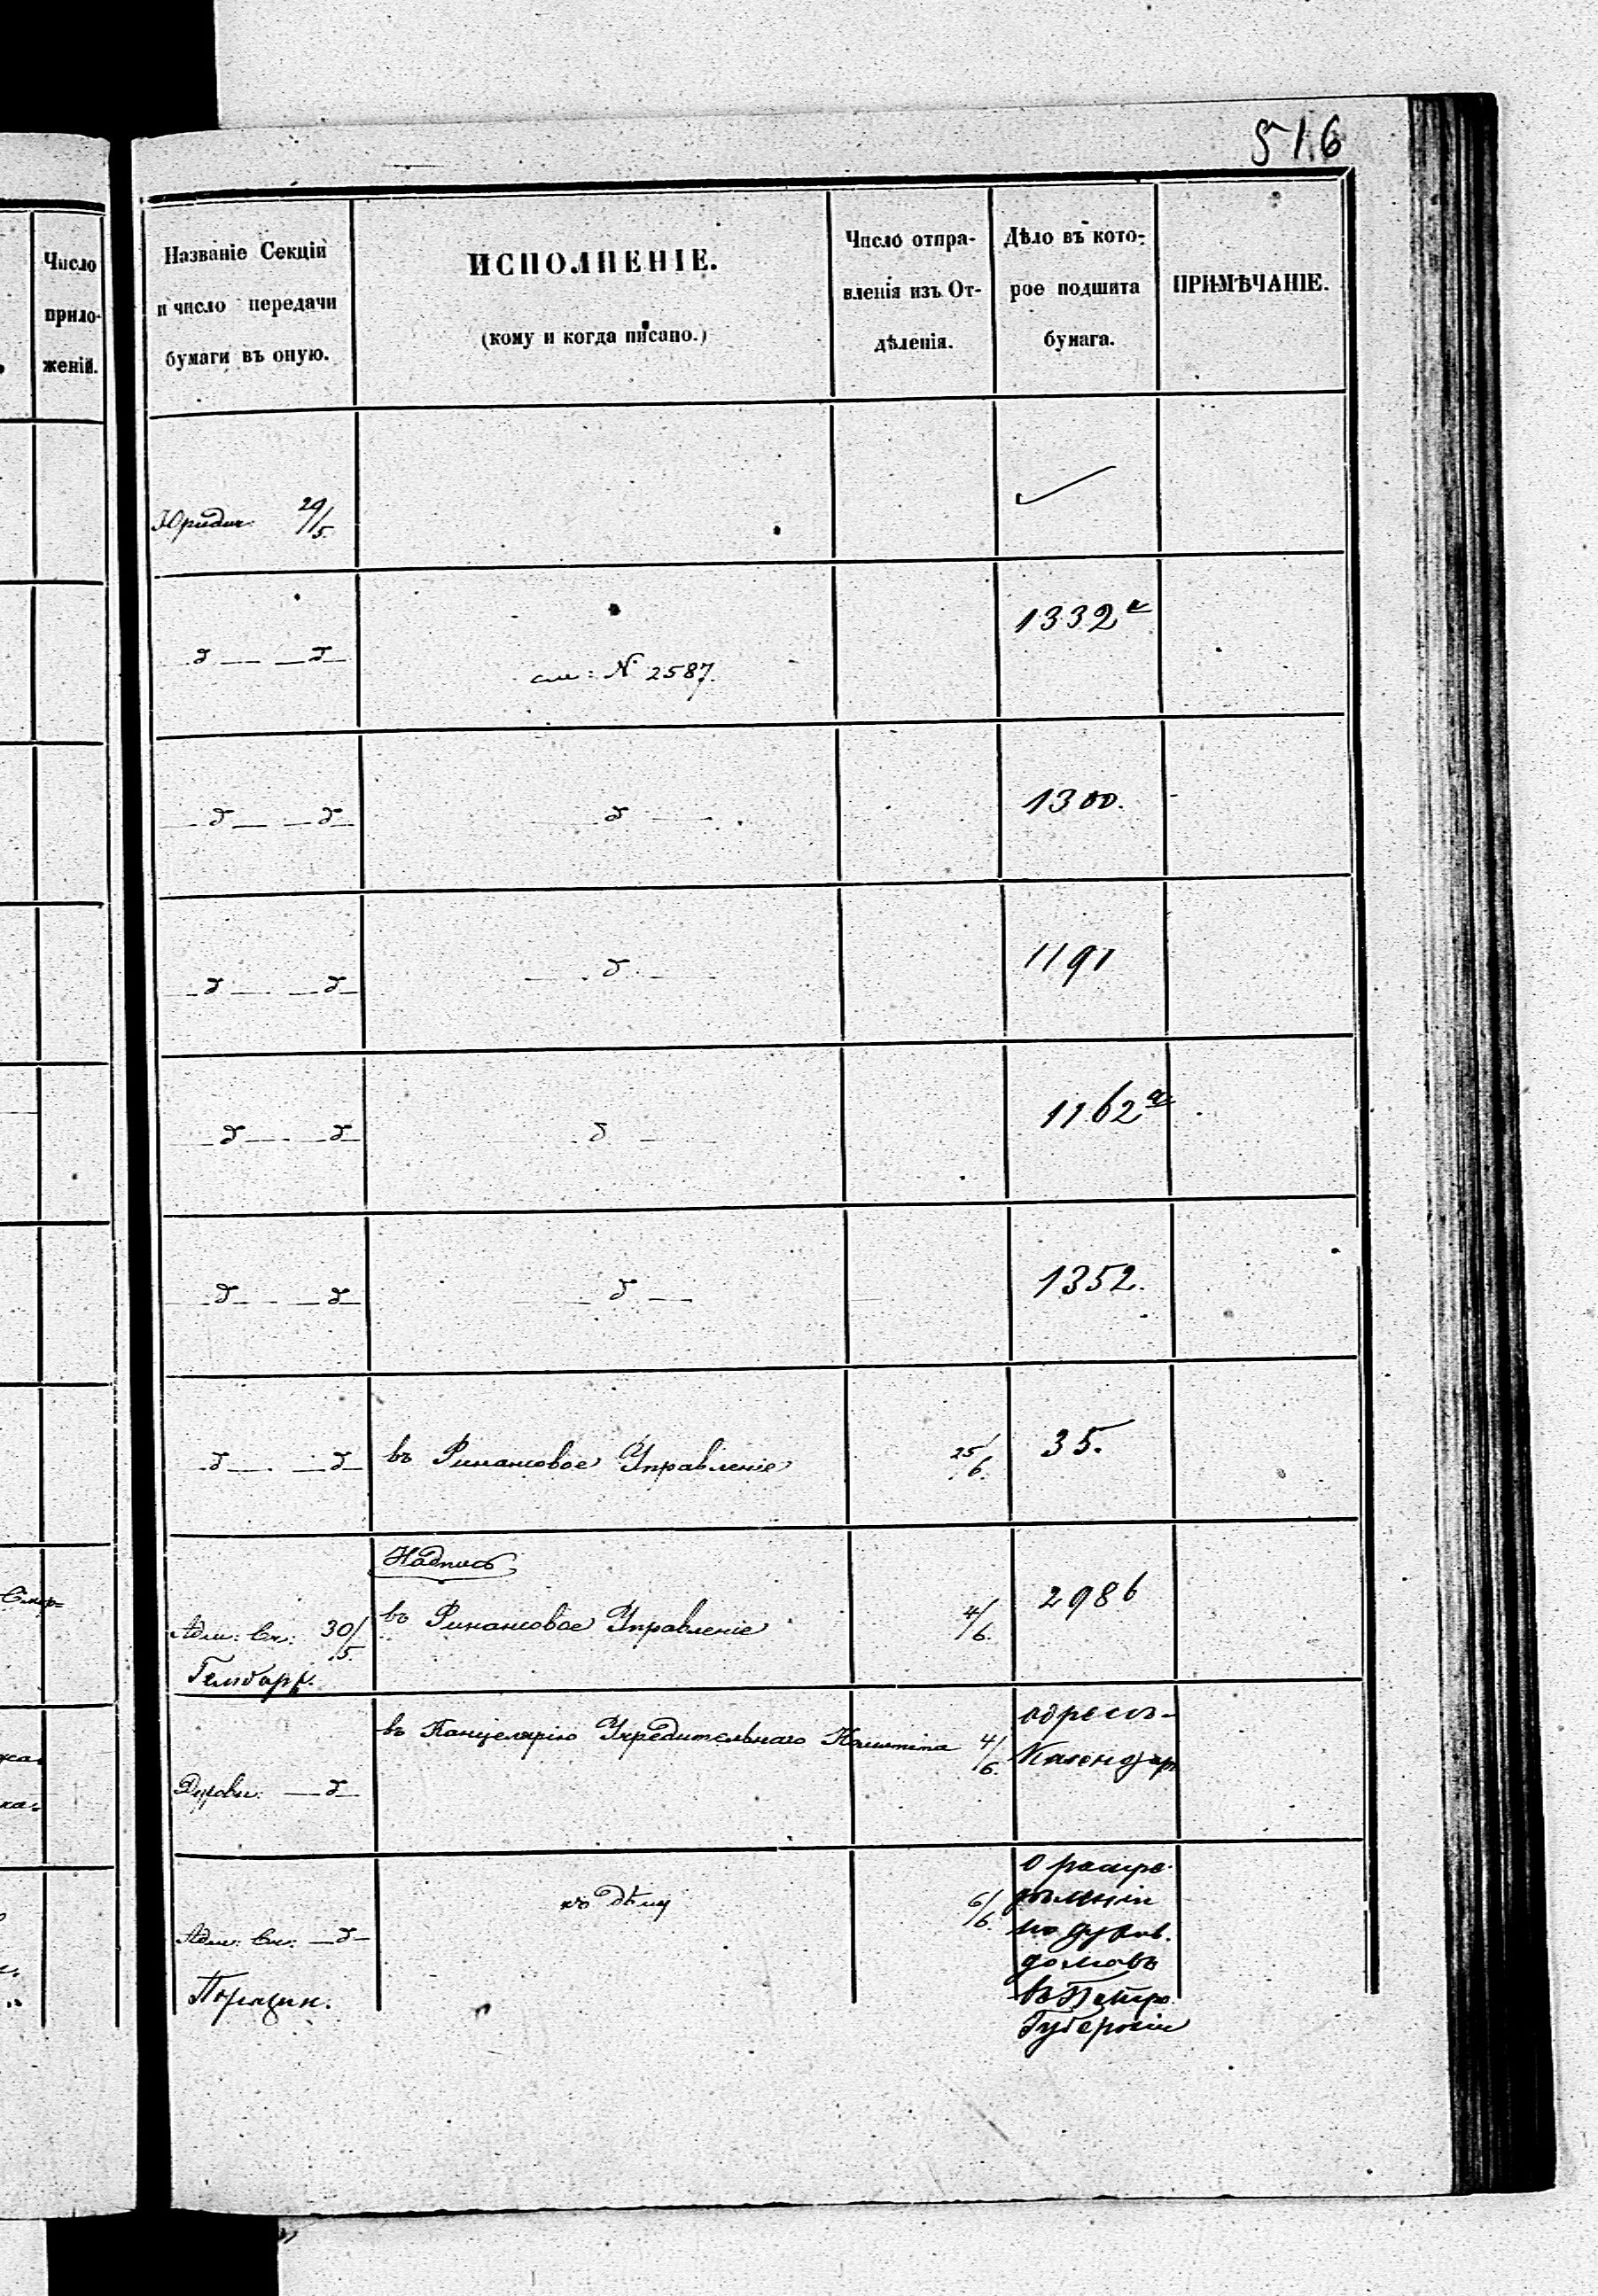 516
Число
прило-
женій.
Названіе Секціи
и число передачи
бумаги въ оную.
ИСПОЛНЕНІЕ.
(кому и когда писано.)
Число отпра-
вленія изъ От-
дѣленія.
Дѣло въ кото-
рое подшита
бумага.
ПРИМѢЧАНІЕ.
Юридич: 29/5
1332 а
— д — — д —
см: N 2587.
— д — — д — — д — 1300.
— д — — д — — д — 1191
— д — — д — — д — 1162 а
— д — — д — — д — 1352.
— д — — д — въ Финансовое Управленіе 25/6. 35.
Надпись
въ Финансовое Управленіе 4/6. 2986
Адм: Сек: 30/5.
въ Канцелярію Учредительнаго Комитета 4/6.
адресъ-
Календарь
Духовн: — д —
къ дѣлу 6/6.
О распре-
дѣленіи
по духов.
домовъ
въ Петро.
Губерніи
Адм: Сек: — д —